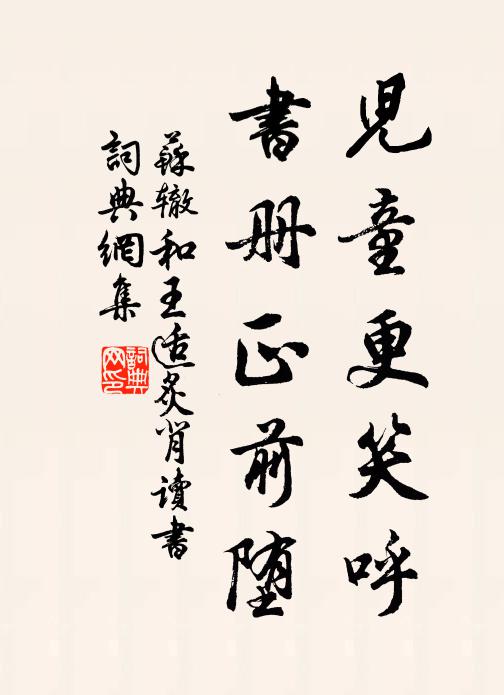 兒童更笑呼
書册正前堕
蘇辙和王适炙背讀書
詞典網集
詞典网印